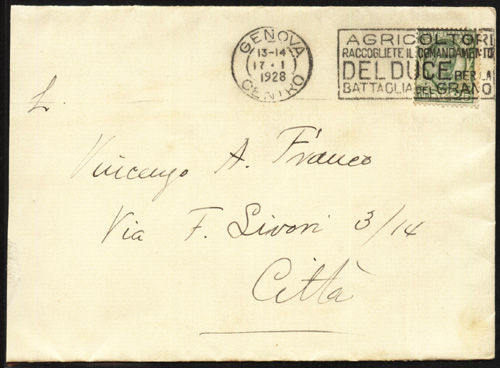 GENOVA
13-14
17·1
1928
CENTRO
AGRICOLTORI
RACCOGLIETE IL COMANDAMENTO
DEL DUCE PER LA
BATTAGLIA DEL GRANO
L.
Vincenzo A. Franco
Via F. Livori 3/14
Città